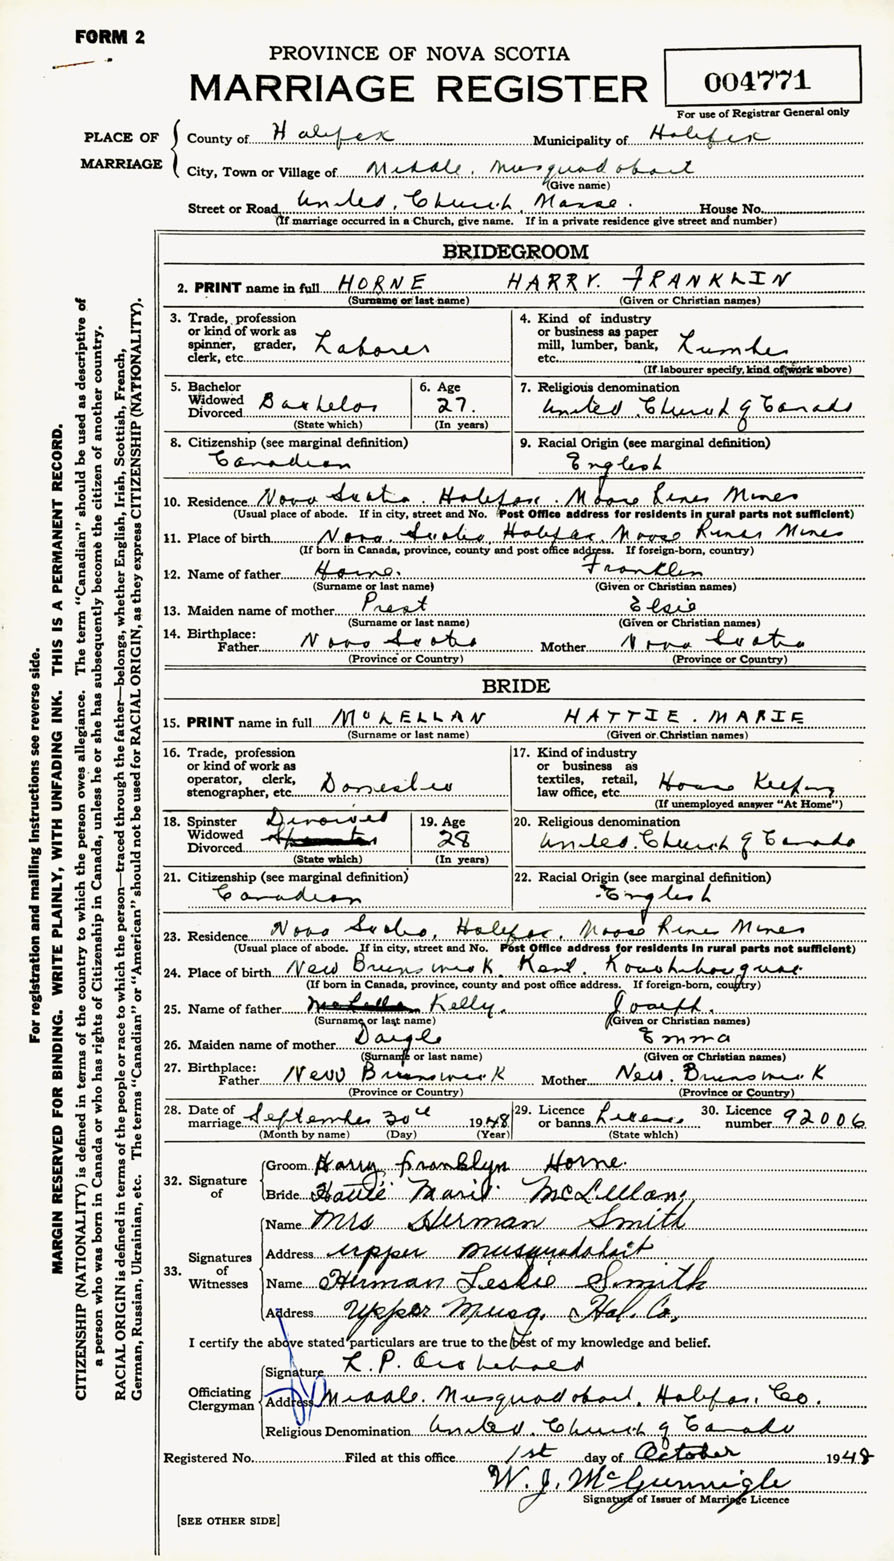 FORM 2
PROVINCE OF NOVA SCOTIA
MARRIAGE REGISTER
004771
For use of Registrar General only
PLACE OF MARRIAGE
County of Halifax Municipality of Halifax
City, Town or Village of Middle. Musquodoboit
(Give name)
Street or Road United. Church. Manse. House No.
(If marriage occurred in a Church, give name. If in a private residence give street and number)
BRIDEGROOM
2. PRINT name in full HORNE HARRY. FRANKLIN
(Surname or last name) (Given or Christian names)
3. Trade, profession or kind of work as spinner, grader, clerk, etc. Laborer
4. Kind of industry or business as paper mill, lumber, bank, etc. Lumber
(If labourer specify, kind of work above)
5. Bachelor Widowed Divorced Bachelor
(State which)
6. Age 27.
(In years)
7. Religious denomination
United. Church of Canada
8. Citizenship (see marginal definition)
Canadian
9. Racial Origin (see marginal definition)
English
10. Residence Nova Scotia. Halifax. Moose River Mines
(Usual place of abode. If in city, street and No. Post Office address for residents in rural parts not sufficient)
11. Place of birth Nova. Scotia. Halifax. Moose River Mines
(If born in Canada, province, county and post office address. If foreign-born, country)
12. Name of father Horne. Franklin
(Surname or last name) (Given or Christian names)
13. Maiden name of mother Prest Elsie
(Surname or last name) (Given or Christian names)
14. Birthplace:
Father Nova Scotia Mother Nova Scotia
(Province or Country) (Province or Country)
BRIDE
15. PRINT name in full McLELLAN HATTIE. MARIE
(Surname or last name) (Given or Christian names)
16. Trade, profession or kind of work as operator, clerk, stenographer, etc. Domestic
17. Kind of industry or business as textiles, retail, law office, etc. House Keeping
(If unemployed answer "At Home")
18. Spinster Widowed Divorced Divorced
(State which)
19. Age 28
(In years)
20. Religious denomination
United. Church of Canada
21. Citizenship (see marginal definition)
Canadian
22. Racial Origin (see marginal definition)
English
23. Residence Nova Scotia, Halifax, Moose River Mines
(Usual place of abode. If in city, street and No. Post Office address for residents in rural parts not sufficient)
24. Place of birth New Brunswick. Kent. Kouchibouguac
(If born in Canada, province, county and post office address. If foreign-born, country)
25. Name of father Kelly. Joseph.
(Surname or last name) (Given or Christian names)
26. Maiden name of mother Daigle Emma
(Surname or last name) (Given or Christian names)
27. Birthplace:
Father New Brunswick Mother New. Brunswick
(Province or Country) (Province or Country)
28. Date of marriage September 30th 1948
(Month by name) (Day) (Year)
29. Licence or banns License
(State which)
30. Licence number 92006
32. Signature of
Groom Harry Franklyn Horne.
Bride Hattie Marie McLellan
33. Signatures of Witnesses
Name Mrs Herman Smith
Address Upper Musquodoboit
Name Herman Leslie Smith
Address Upper Musq. Hal. Co.
I certify the above stated particulars are true to the best of my knowledge and belief.
Officiating Clergyman
Signature L. P. Archibald
Address Middle. Musquodoboit, Halifax. Co.
Religious Denomination United. Church of Canada
Registered No. Filed at this office 1st day of October 1948
W. J. McGunnigle
Signature of Issuer of Marriage Licence
[SEE OTHER SIDE]
For registration and mailing instructions see reverse side.
MARGIN RESERVED FOR BINDING. WRITE PLAINLY, WITH UNFADING INK. THIS IS A PERMANENT RECORD.
CITIZENSHIP (NATIONALITY) is defined in terms of the country to which the person owes allegiance. The term "Canadian" should be used as descriptive of
a person who was born in Canada or who has rights of Citizenship in Canada, unless he or she has subsequently become the citizen of another country.
RACIAL ORIGIN is defined in terms of the people or race to which the person—traced through the father—belongs, whether English, Irish, Scottish, French,
German, Russian, Ukrainian, etc. The terms "Canadian" or "American" should not be used for RACIAL ORIGIN, as they express CITIZENSHIP (NATIONALITY).